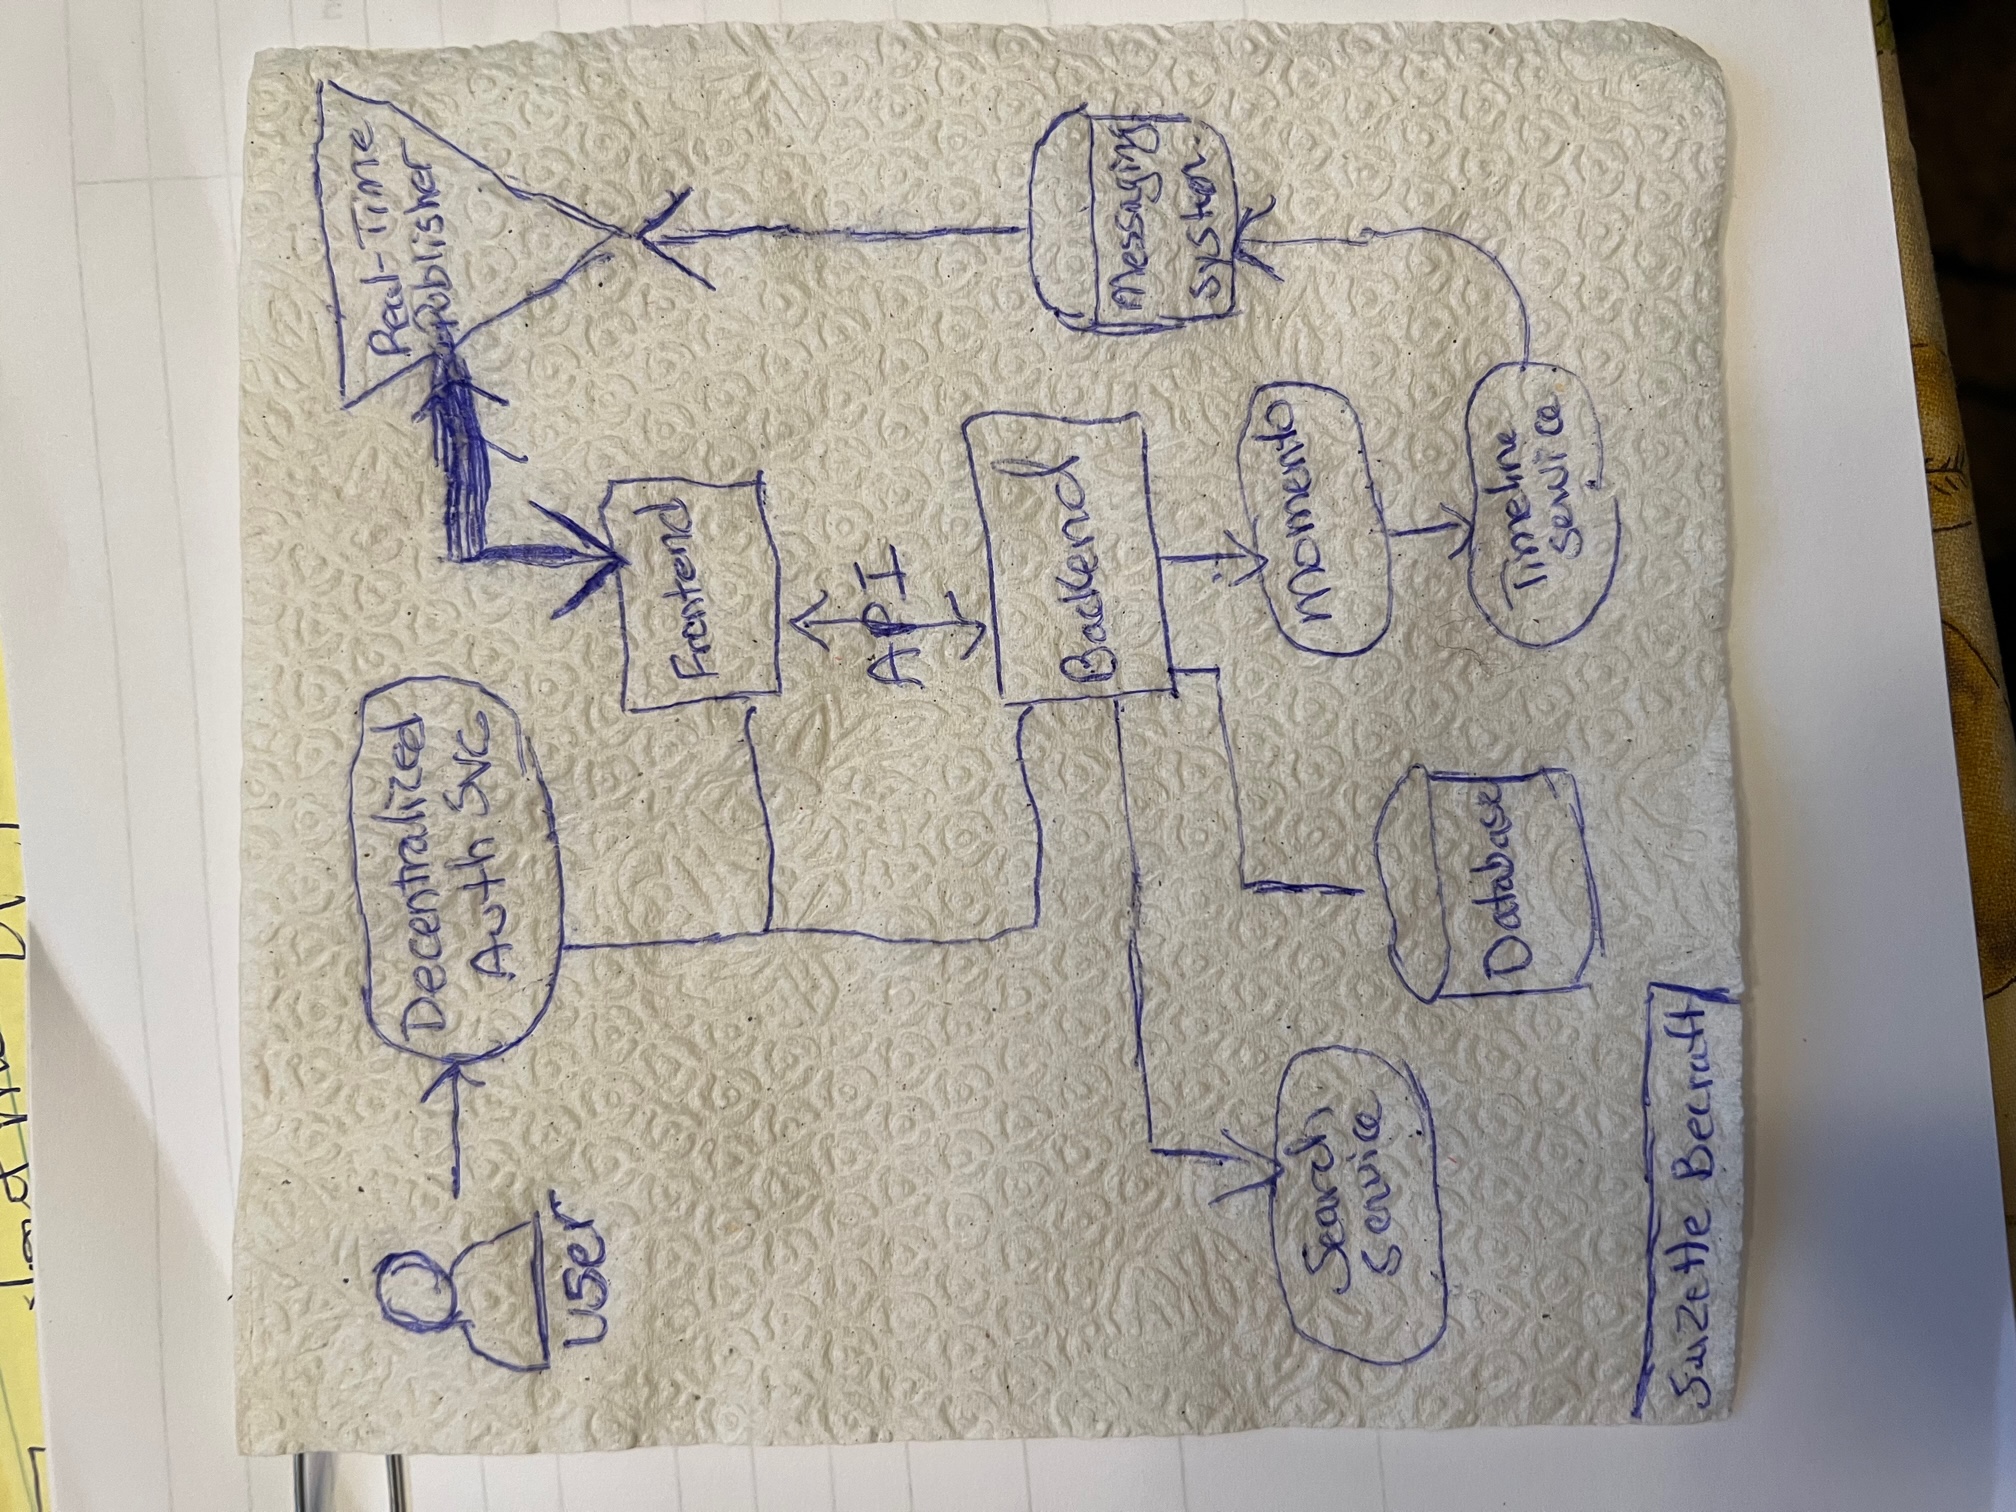 Decentralized
Auth SVC
Real-Time
Publisher
User
Frontend
API
Backend
Messaging
System
Search
Service
Momento
Database
Timeline
Service
Suzette Becraft